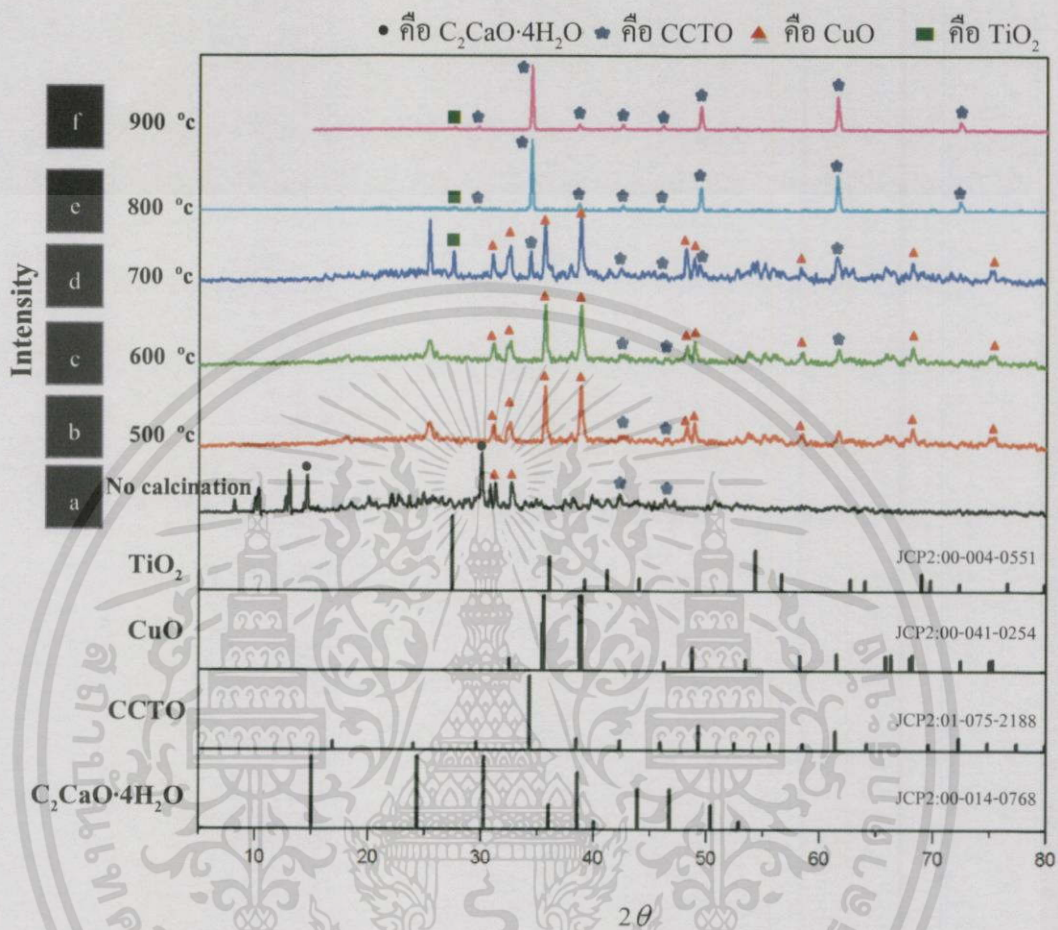 • คือ C₂CaO·4H₂O คือ CCTO ▲ คือ CuO ■ คือ TiO₂
f 900 °c
e 800 °c
d 700 °c
c 600 °c
b 500 °c
a No calcination
Intensity
TiO₂ JCP2:00-004-0551
CuO JCP2:00-041-0254
CCTO JCP2:01-075-2188
C₂CaO·4H₂O JCP2:00-014-0768
10 20 30 40 50 60 70 80
2θ